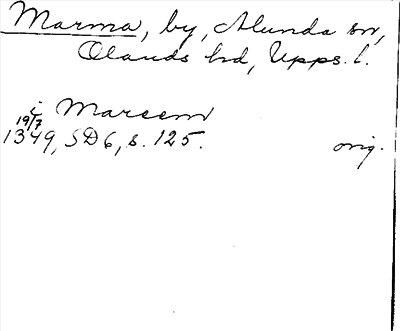 Marma, by, Alunda sn,
Olands hd, Upps. l.
i Marem
19/7
1349, SD6, s. 125. orig.